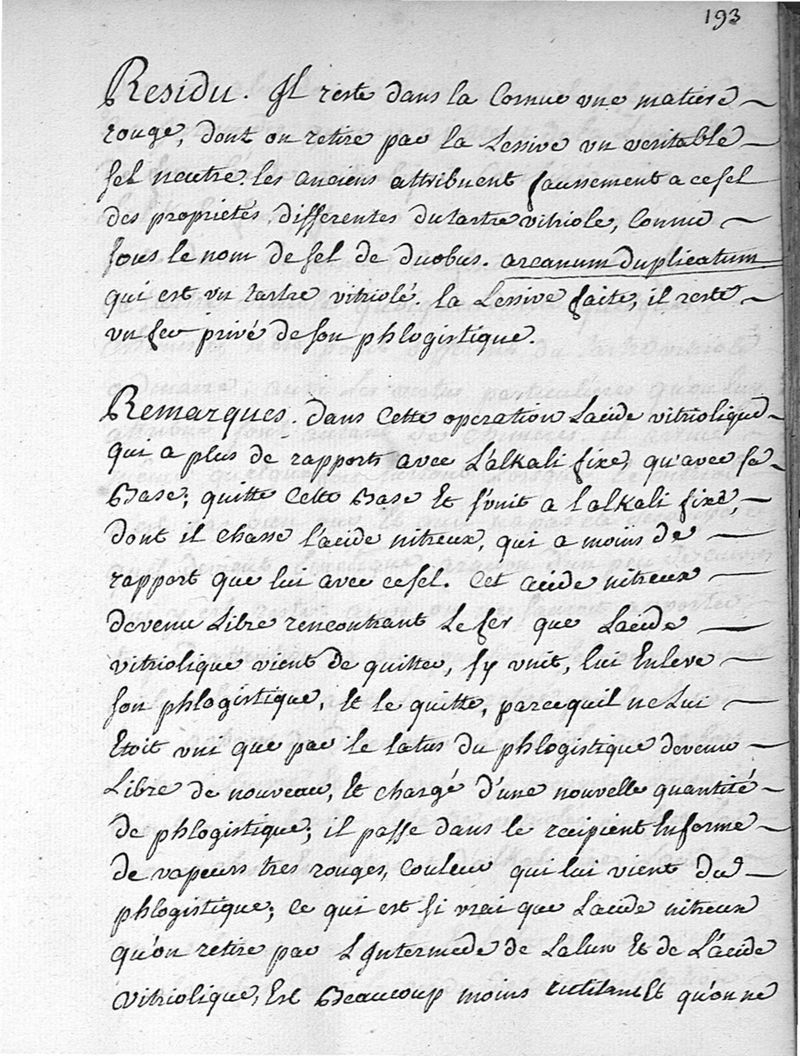 193
Residu. Il reste dans la Cornue une matiere
rouge, dont on retire par la Lessive un veritable
sel neutre. les anciens attribuent faussement a ce sel
des proprietés differentes du tartre vitriolé, Connu
sous le nom de sel de duobus. arcanum duplicatum
qui est un tartre vitriolé. la Lessive faite, il reste
un fer privé de son phlogistique.
Remarques. dans Cette operation Lacide vitriolique
qui a plus de rapports avec L'alkali fixe, qu'avec sa
Base; quitte Cette Base Et s'unit a l'alkali fixe,
dont il chasse l'acide nitreux, qui a moins de
rapport que lui avec ce sel. Cet acide nitreux
devenu Libre rencontrant Le fer que Lacide
vitriolique vient de quitter, s'y unit, lui Enleve
son phlogistique, Et le quitte, parcequil ne Lui
Etoit uni que par le latus du phlogistique devenu
Libre de nouveau, Et chargé d'une nouvelle quantité
de phlogistique; il passe dans le recipient En forme
de vapeurs tres rouges, Couleur qui lui vient du
phlogistique; Ce qui est si vrai que Lacide nitreux
qu'on retire par L'Intermede de Lalun Et de L'acide
vitriolique, Est Beaucoup moins rutilant Et qu'on ne